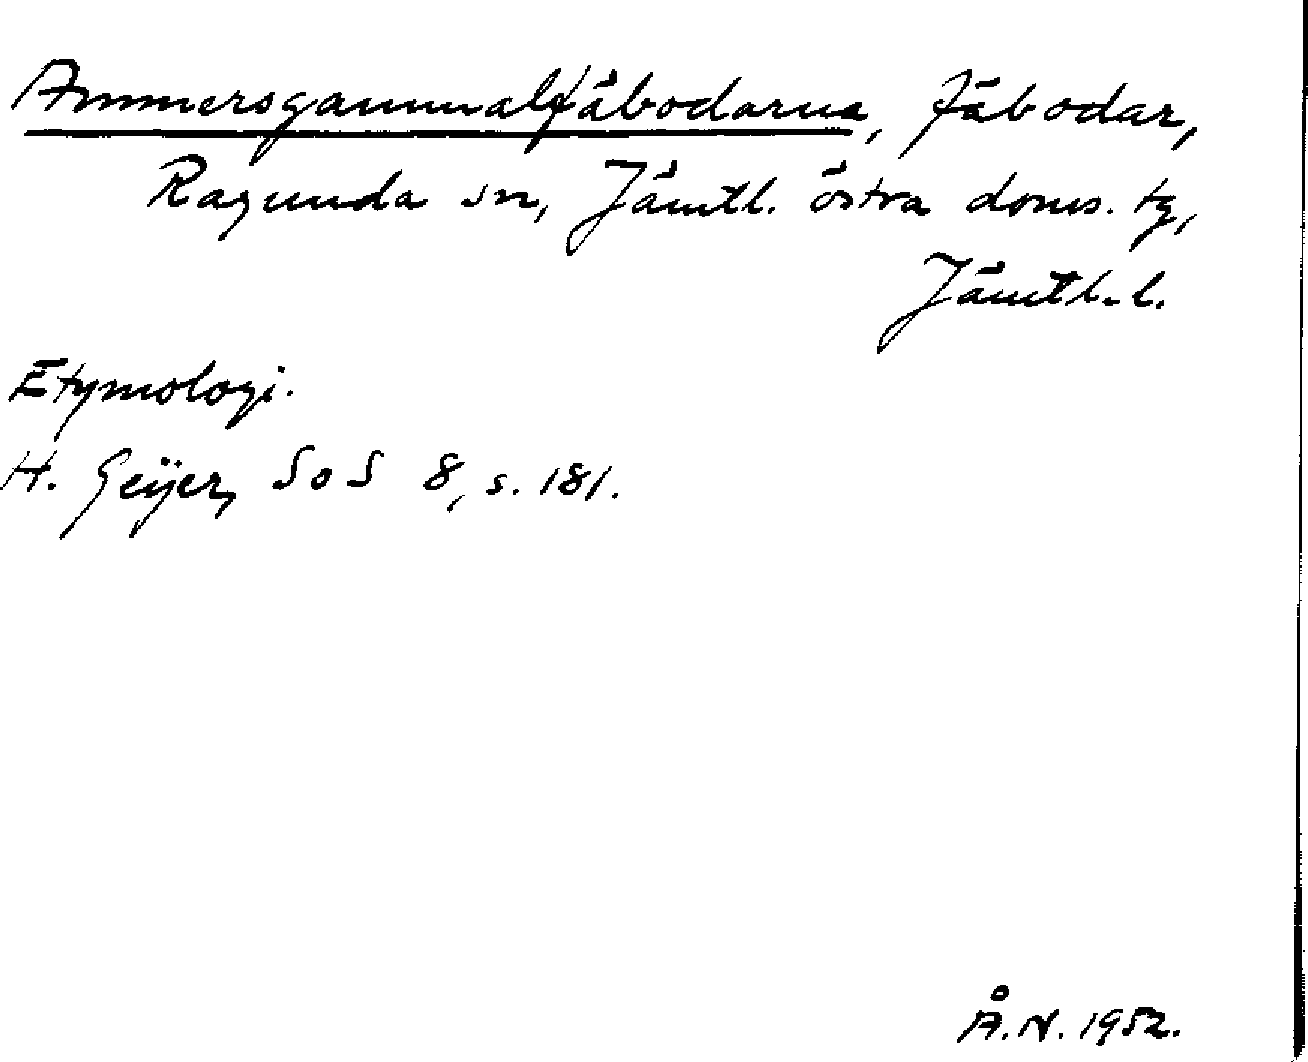 Ammersgammalfäbodarna, fäbodar,
Ragunda sn, Jämtl. östra doms. tg,
Jämtl. l.
Etymologi.
H. Geijer, SoS 8, s. 181.
Å.N. 1952.